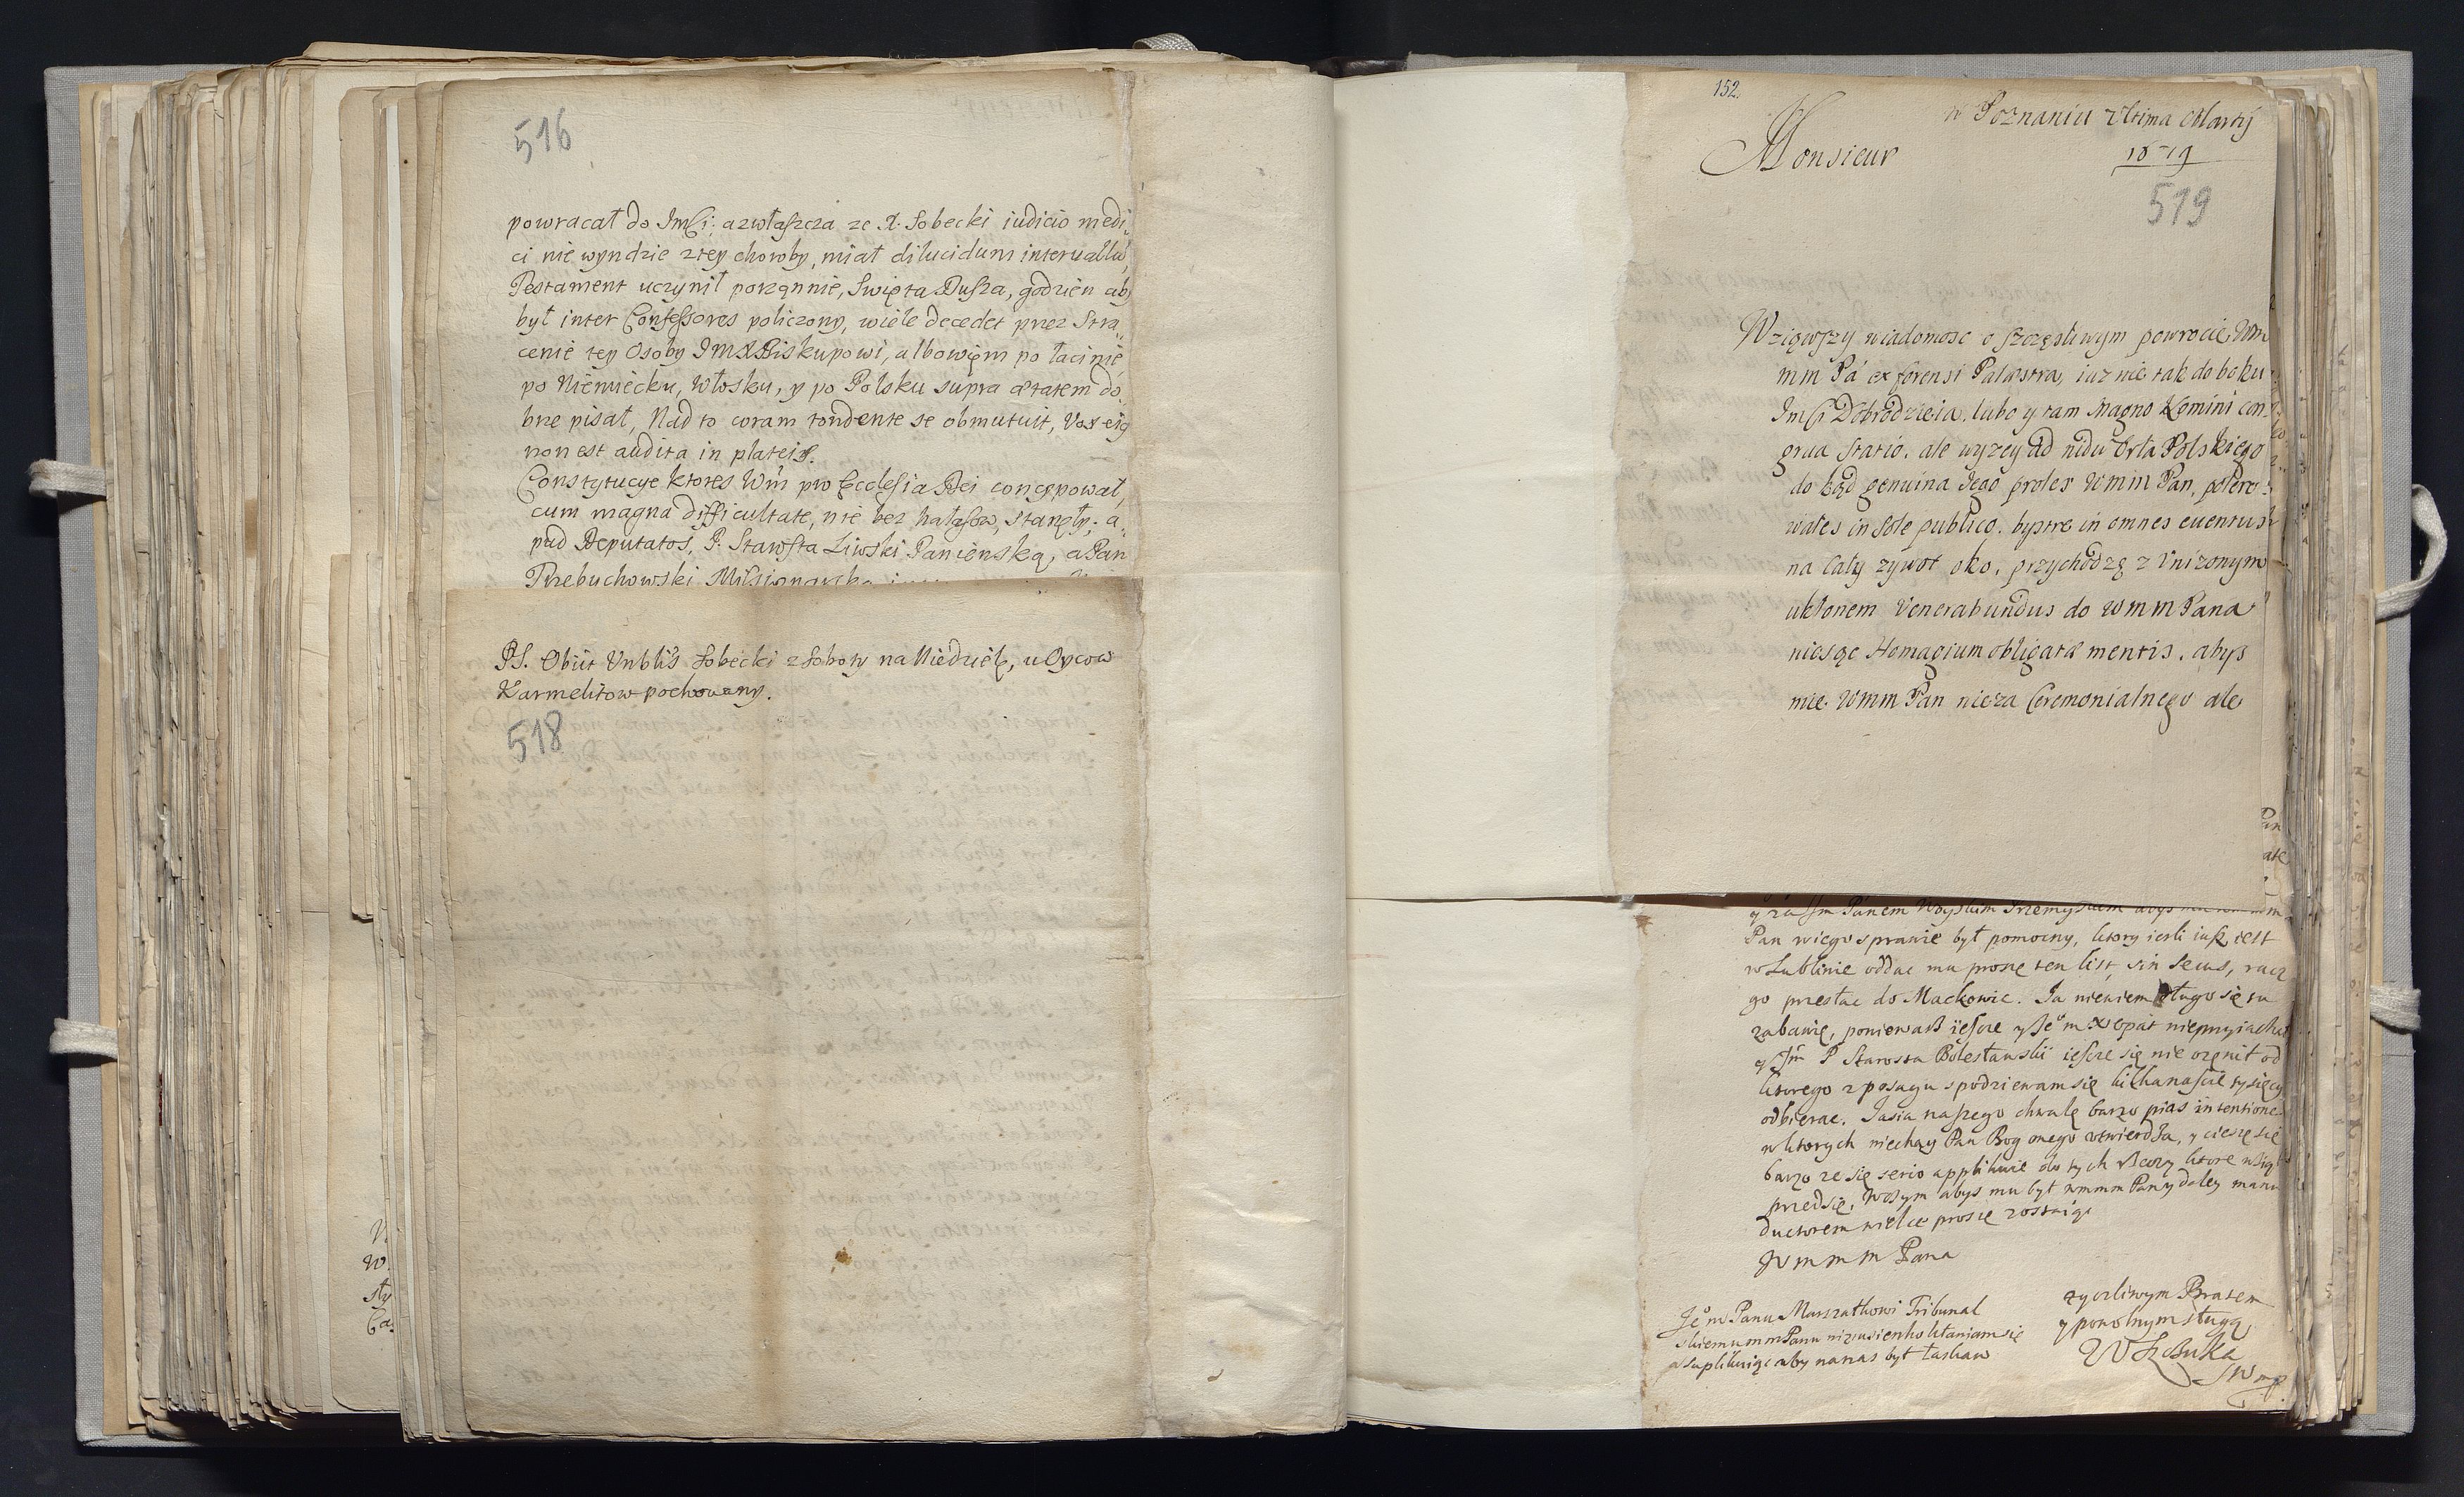 516
powracał do Jmści; a zwłaszcza ze X. Sobecki iudicio medi-
ci nie wyndzie z tey choroby, miał dilucidum interuallū,
Testament uczynił porządnie, Swięta Dusza, godzien aby
był inter Confessores policzony, wiele decedet przez Stra-
cenie tey Osoby JMX Biskupowi, albowięm po łacinie,
po Niemiecku, Włosku, y po Polsku supra ætatem do-
brze pisał, Nad to coram tondente se obmutuit, Vox eig
non est audita in plateis.
Constytucye ktores Wm pro Ecclesia Dei concępował,
cum magna difficultate, nie bez hałasow, stanęły; a-
pud Deputatos, P. Starosta Liwski Panienską, a Pan
Przebuchowski
PS. Obiit Vnblis Sobecki z Soboty na Niedzielę, u Oycow
Karmelitow pochowany.
518
152.
w Poznaniu Vltima Martij
1679
Monsieur
519
Wziąwszy wiadomosc o szczęsliwym powrocie Wm
mm Pá ex forensi Palæstra, iuz nie tak do boku
Jmści Dobrodzieia, lubo y tam Magno Homini con-
grua statio, ale wyzey ad nidū Orła Polskiego
do kąd genuina Jego proles Wmm Pan, potero
wales in sole publico, bystre in omnes euentus
na cały zywot oko, przychodzę z Vnizonym
ukłonem Venerabundus do Wmm Pana
niosąc Homagium obligatæ mentis, abys
mie Wmm Pan nie za Ceremonialnego ale
Pan w iego sprawie był pomocny, ktory iesli iusz iest
w Lublinie oddac mu proszę ten list, sin secus, racz
go przesłac do Mackowic. Ja niewiem długo się tu
zabawię, poniewasz iescze y Jem X Opat nieprzyiachał
y Jm P Starosta Bolesławski iescze się nie ozenił od
ktorego z posagu spodziewam się kilkanascie tysięcy
odbierac. Jasia naszego chwalę barzo pias intentiones
w ktorych niechay Pan Bog onego vtwierdza, y cieszę się
barzo ze się serio applikuie do tych rzeczy ktore wziął
przedsię, w czym abys mu był wmmm Pan y daley manu
ductorem wielce proszę zostaiąc
Wmmm Pana
zyczliwym Bratem
y powolnym sługą
W Szczuka
Jem Panu Marszałkowi Tribunal
skiemu mm Panu nizusienko kłaniam się
a suplikuiąc aby na nas był łaskaw